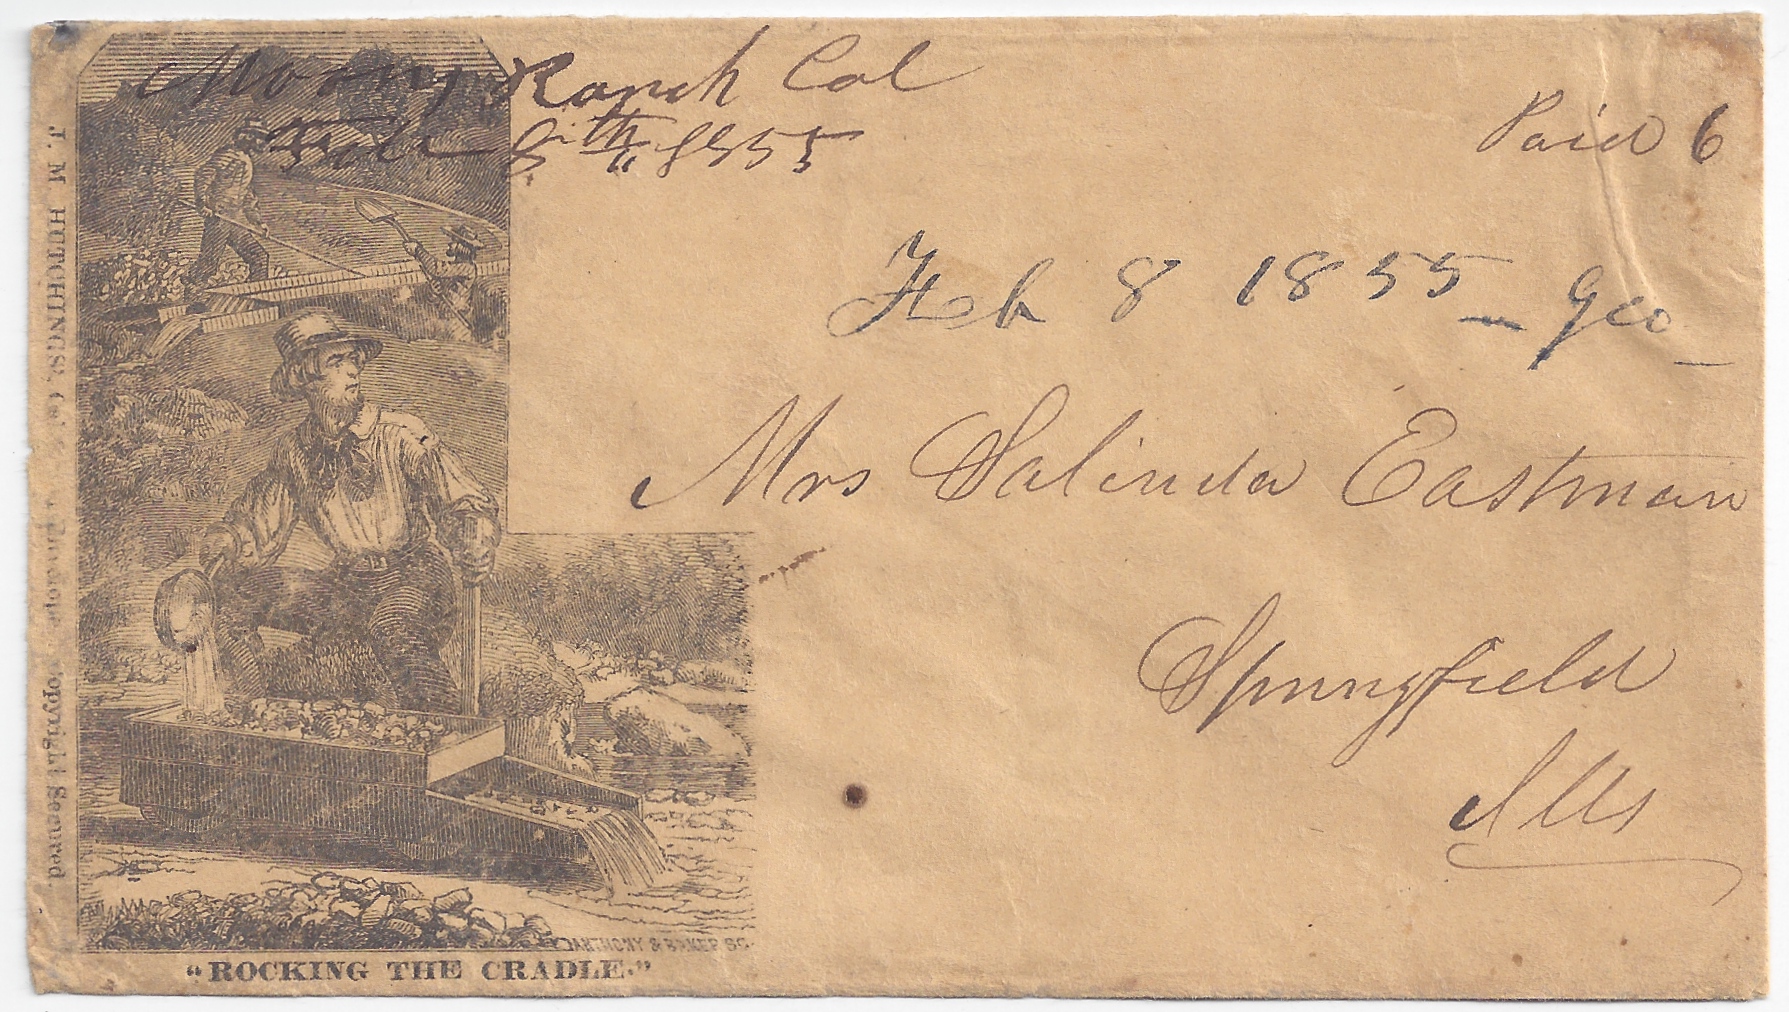 Moony Ranch Cal
Feb 8th 1855
Paid 6
Feb 8 1855 - Geo -
Mrs Salinda Eastman
Springfield
Ills
J. M. HUTCHINGS' Envelope Copyright Secured
ANTHONY & BAKER SC
"ROCKING THE CRADLE."